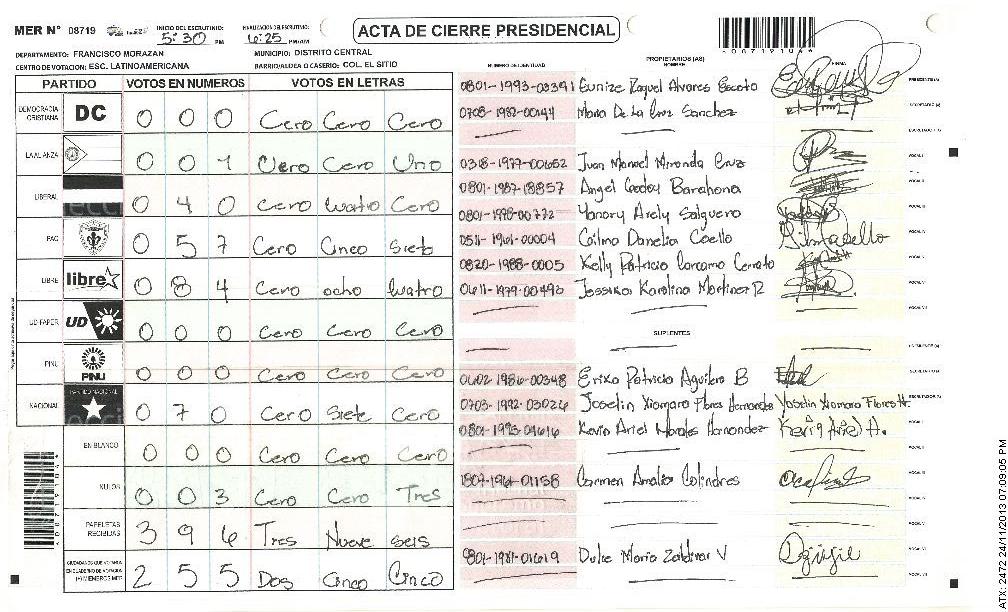 MER N° 08719
INICIO DEL ESCRUTINIO: 5:30 PM
FINALIZACION DEL ESCRUTINIO: 6:25 PM/AM
ACTA DE CIERRE PRESIDENCIAL
DEPARTAMENTO: FRANCISCO MORAZAN
MUNICIPIO: DISTRITO CENTRAL
CENTRO DE VOTACION: ESC. LATINOAMERICANA
BARRIO/ALDEA O CASERIO: COL. EL SITIO
PARTIDO VOTOS EN NUMEROS VOTOS EN LETRAS
DEMOCRACIA CRISTIANA DC 0 0 0 Cero Cero Cero
LA ALIANZA 0 0 1 Cero Cero Uno
LIBERAL 0 4 0 Cero Cuatro Cero
PAC 0 5 7 Cero Cinco Siete
LIBRE libre 0 8 4 Cero ocho Cuatro
UD-FAPER UD 0 0 0 Cero Cero Cero
PINU PINU 0 0 0 Cero Cero Cero
NACIONAL 0 7 0 Cero Siete Cero
EN BLANCO 0 0 0 Cero Cero Cero
NULOS 0 0 3 Cero Cero Tres
PAPELETAS RECIBIDAS 3 9 6 Tres Nueve seis
2 5 5 Dos Cinco Cinco
NUMERO DE IDENTIDAD
PROPIETARIOS (AS)
NOMBRE
FIRMA
0801-1993-00391 Eunize Raquel Alvares Escoto
0708-1982-00144 Maria De La Cruz Sanchez
0318-1979-00652 Juan Manuel Miranda Cruz
0801-1987-18857 Angel Godoy Barahona
0801-1978-00772 Yanory Arely Salguero
0511-1961-00004 Gilma Danelia Coello
0820-1988-0005 Kelly Patricia Carcamo Cerrato
0611-1979-00492 Jessika Karolina Martinez R
SUPLENTES
0602 1986-00348 Erika Patricia Aguilera B
0703-1992-03026 Joselin Xiomara Flores Hernandez Yoselin Xiomara Flores H.
0801-1993-04616 Kevin Ariel Morales Hernandez Kevin Ariel H.
1807-1961-01158 Carmen Amalia Colindres
0801-1981-01619 Dulce Maria Zaldivar V
ATX: 2472 24/11/2013 07:09:05 PM